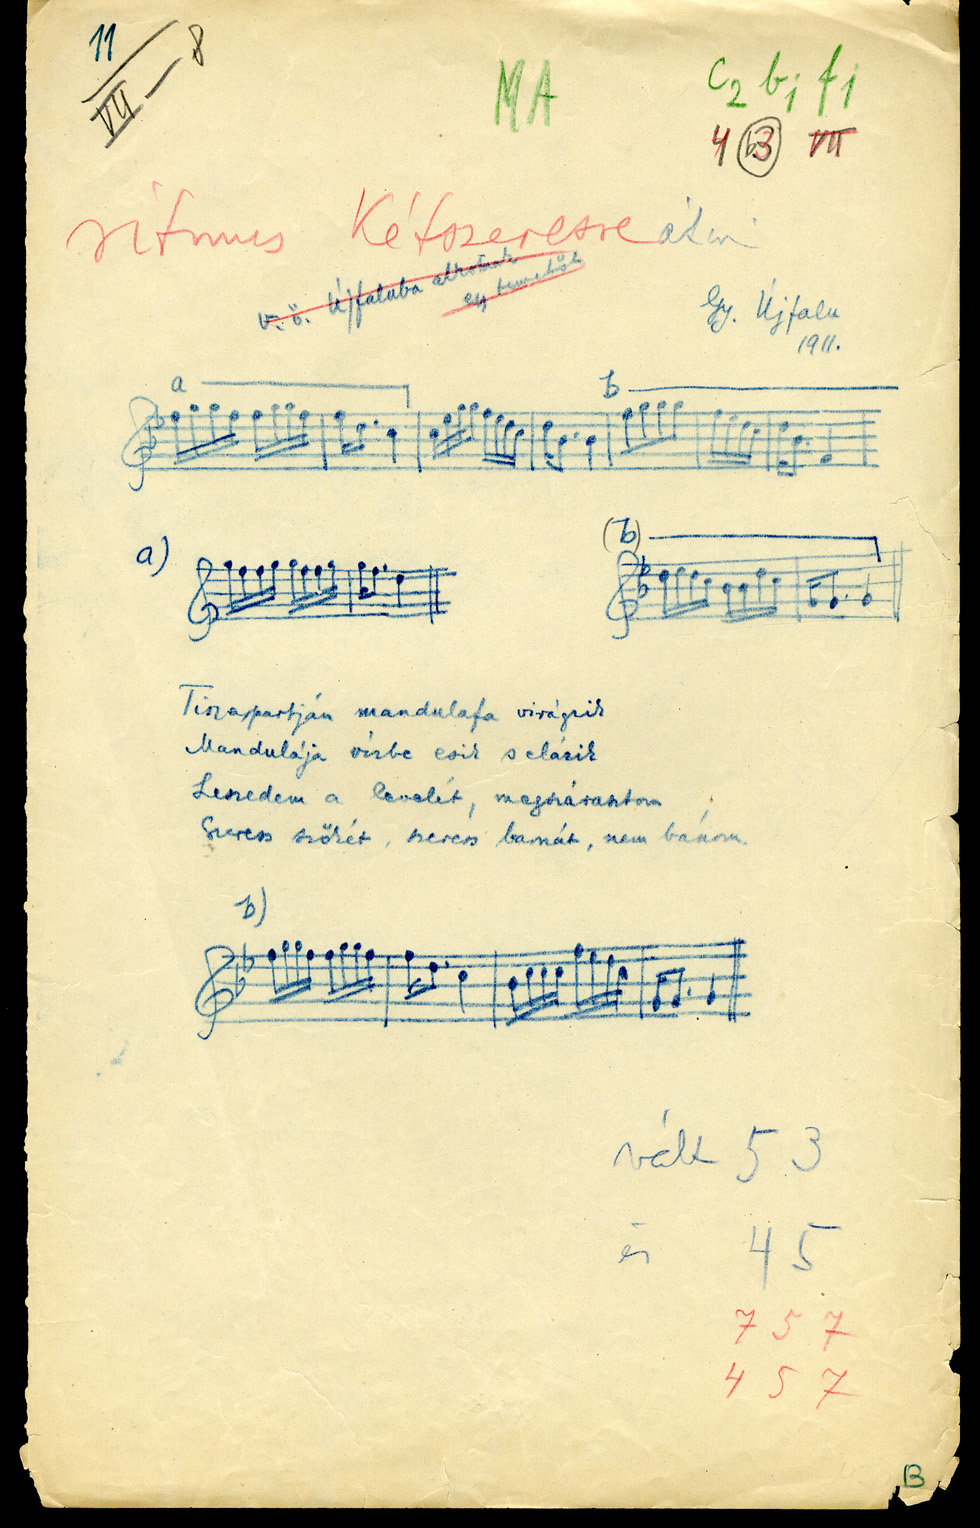 11
VII
8
MA
c2 b1 f1
4 b3 VII
ritmus Kétszeresre átírni
v. ö. Újfaluba
egy
Gy. Újfalu
1911.
a
b
a)
(b)
Tiszapartján mandulafa virágzik
Mandulája vízbe esik s elázik
Leszedem a levelét, megszárasztom
Szeress szőkét, szeress barnát, nem bánom.
b)
vált 5 3
és 4 5
7 5 7
4 5 7
B